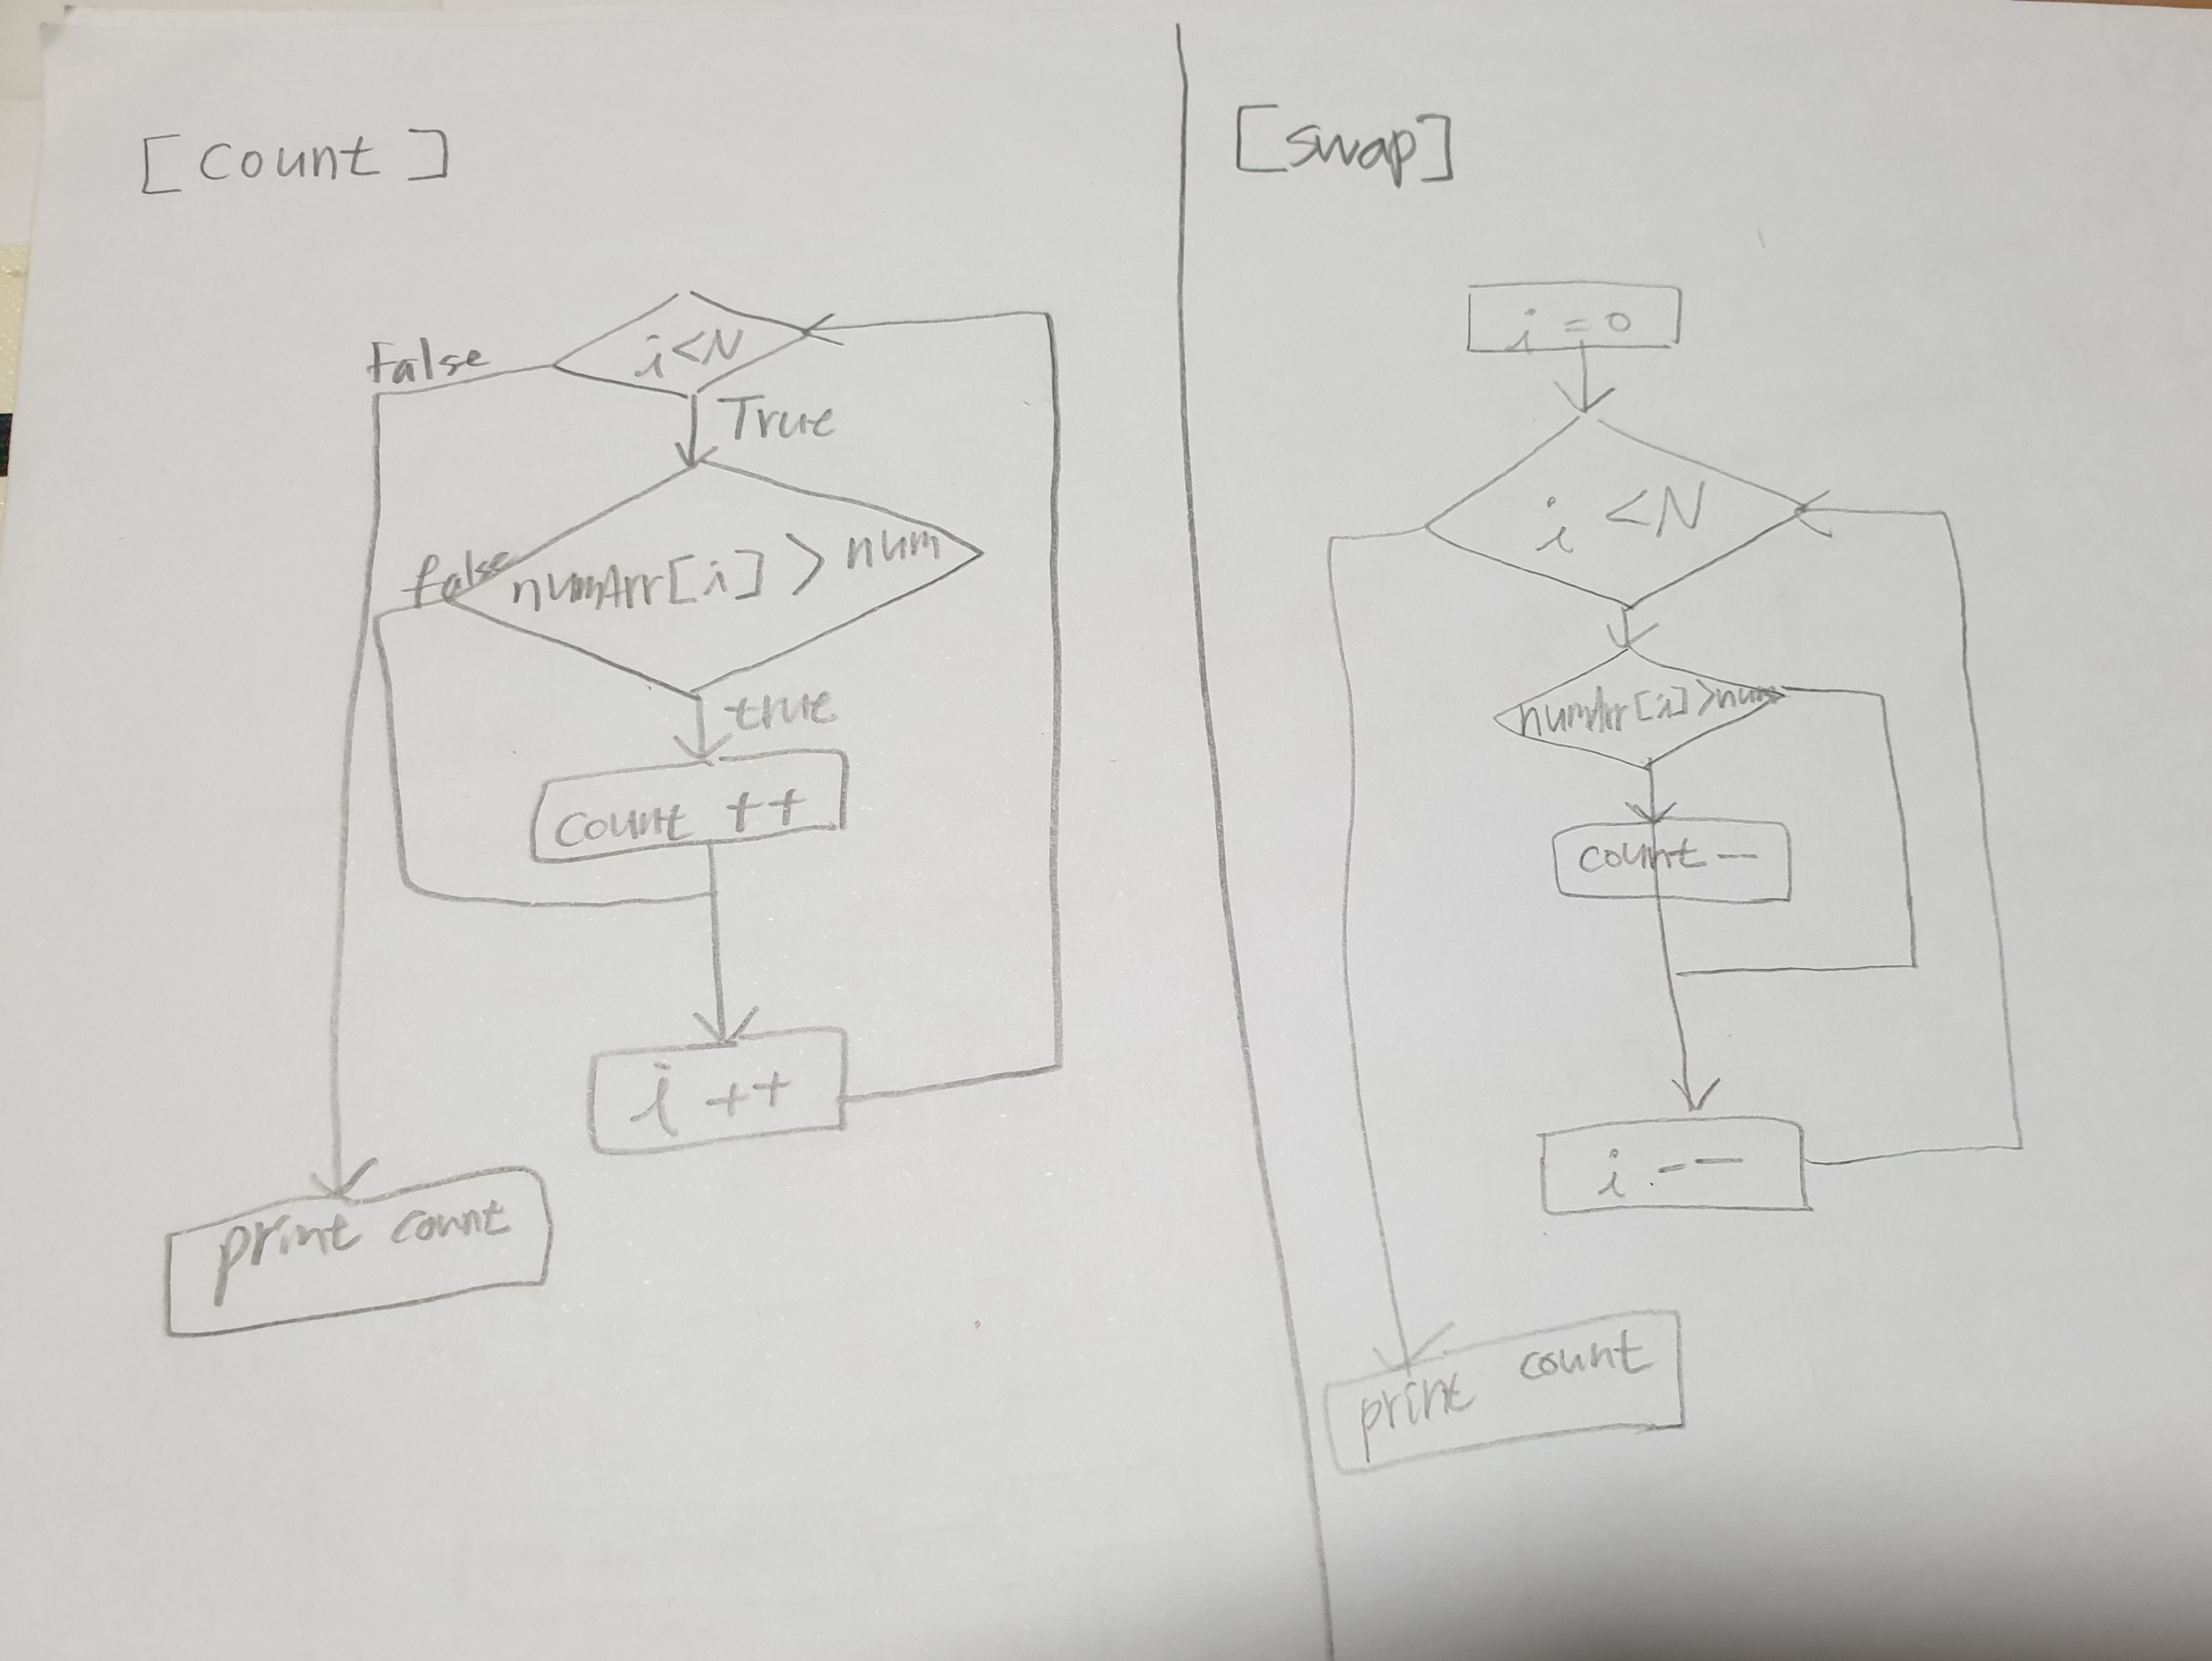 [count]
i<N
False
True
numArr[i] > num
false
true
count ++
i ++
print count
[swap]
i = 0
i <N
numArr[i] >num
count —
i --
print count